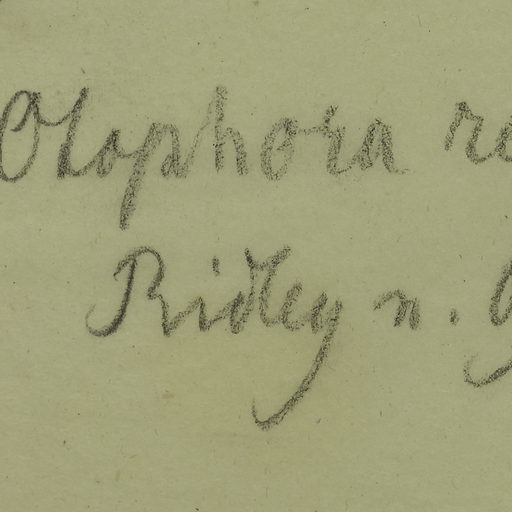 Otophora re
Ridley n.